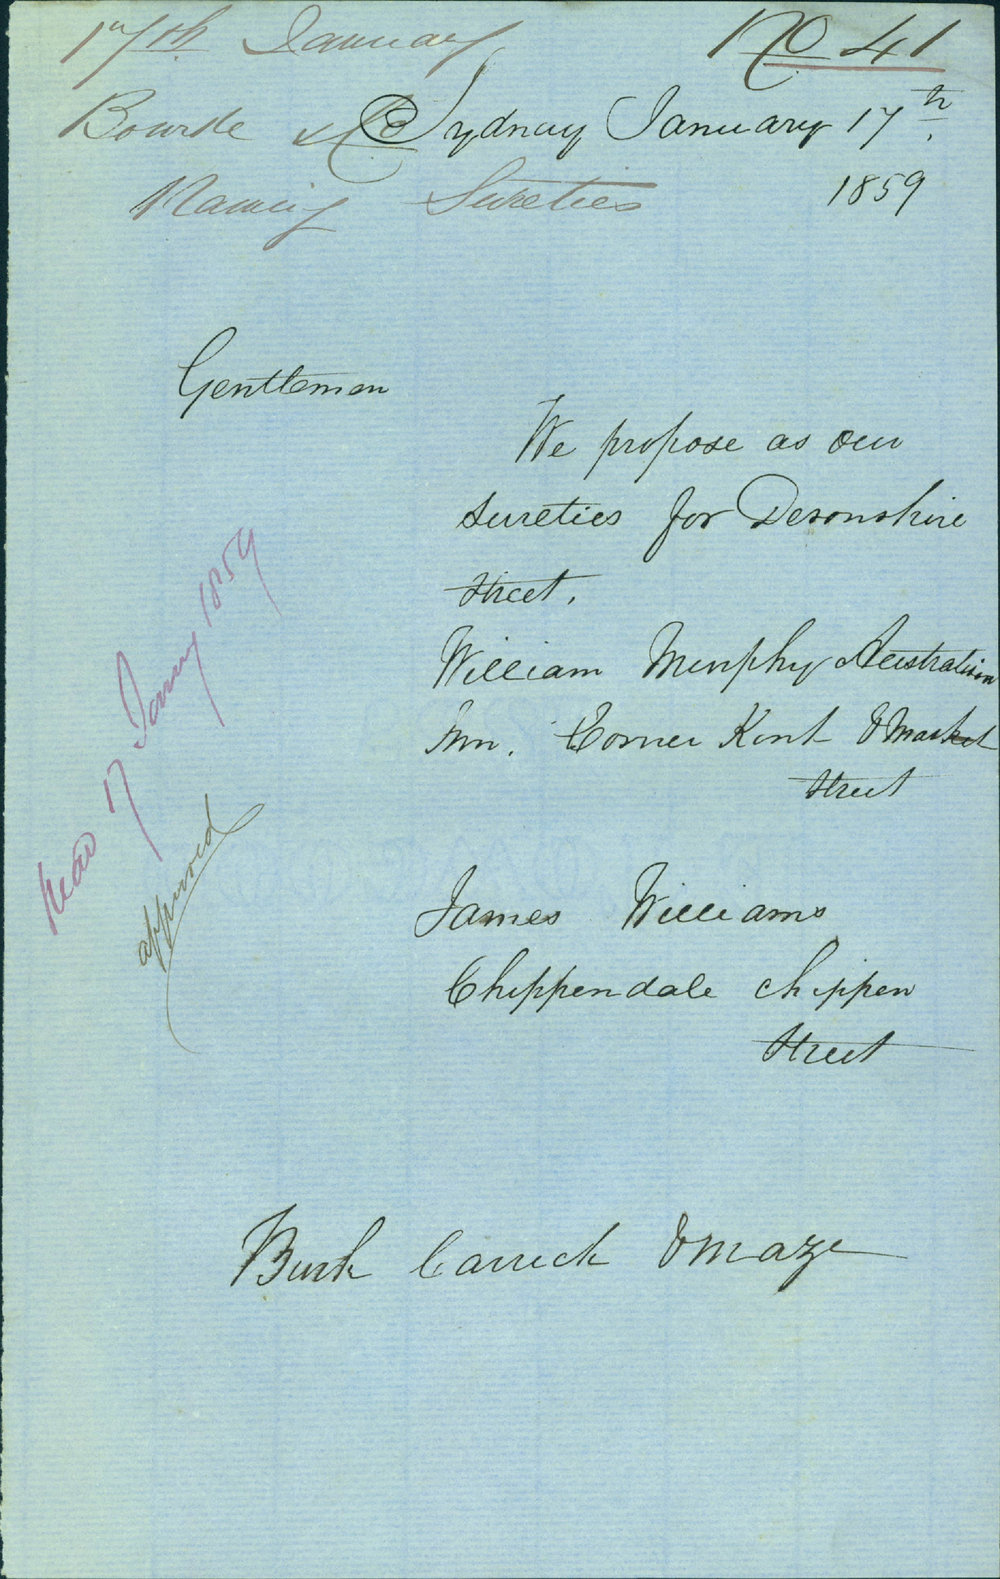 17th January
No 41
Bourke & Co
Naming Sureties
Sydney January 17th
1859
Gentlemen
We propose as our
sureties for Devonshire
Street.
William Murphy Australian
Inn. Corner Kent & Market
Street
James Williams
Chippendale Chippen
Street
Burk Carrick & Maze
Read 17 January 1859
approved